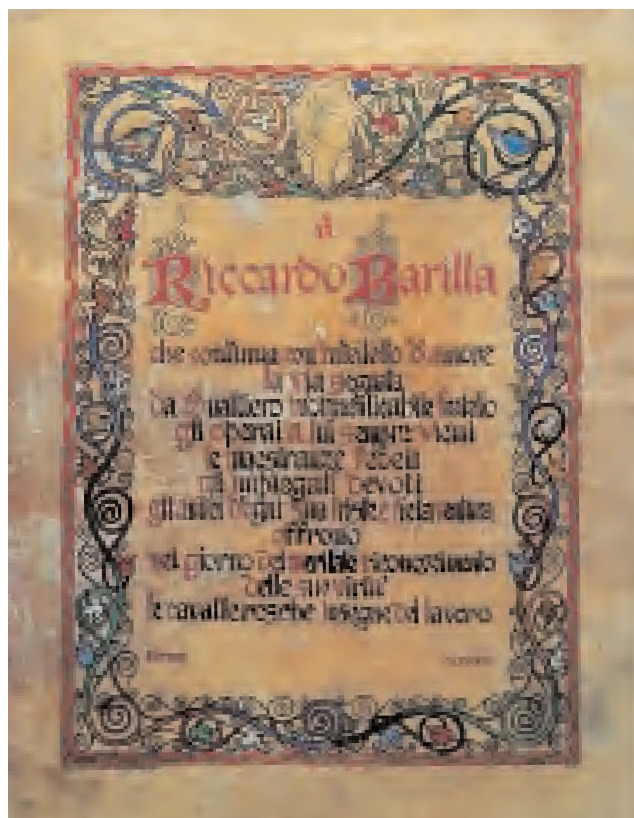 a
Riccardo Barilla
che continua con intelletto d'amore
la via segnata
da Gualtiero indimenticabile fratello
gli operai a lui sempre vicini
le maestranze fedeli
gli impiegati devoti
gli amici d'ogni
offrono
nel giorno del riconoscimento
delle sue virtù
le cavalleresche insegne del lavoro